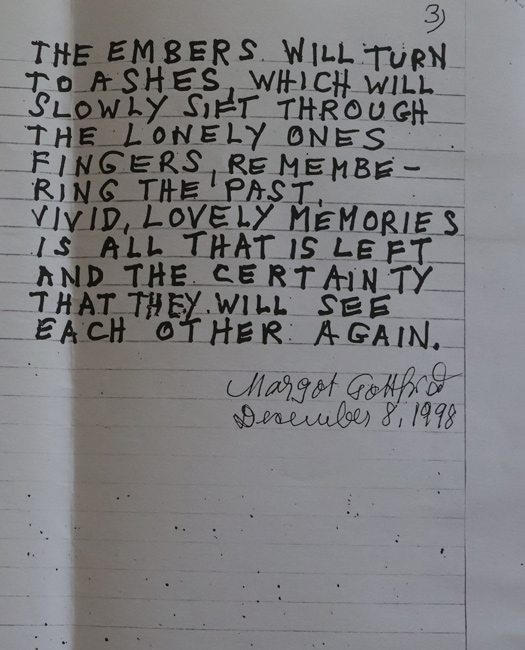 3)
THE EMBERS WILL TURN
TO ASHES, WHICH WILL
SLOWLY SIFT THROUGH
THE LONELY ONES
FINGERS, REMEMBE-
RING THE PAST.
VIVID, LOVELY MEMORIES
IS ALL THAT IS LEFT
AND THE CERTAINTY
THAT THEY WILL SEE
EACH OTHER AGAIN.
Margot Gottfried
December 8, 1998